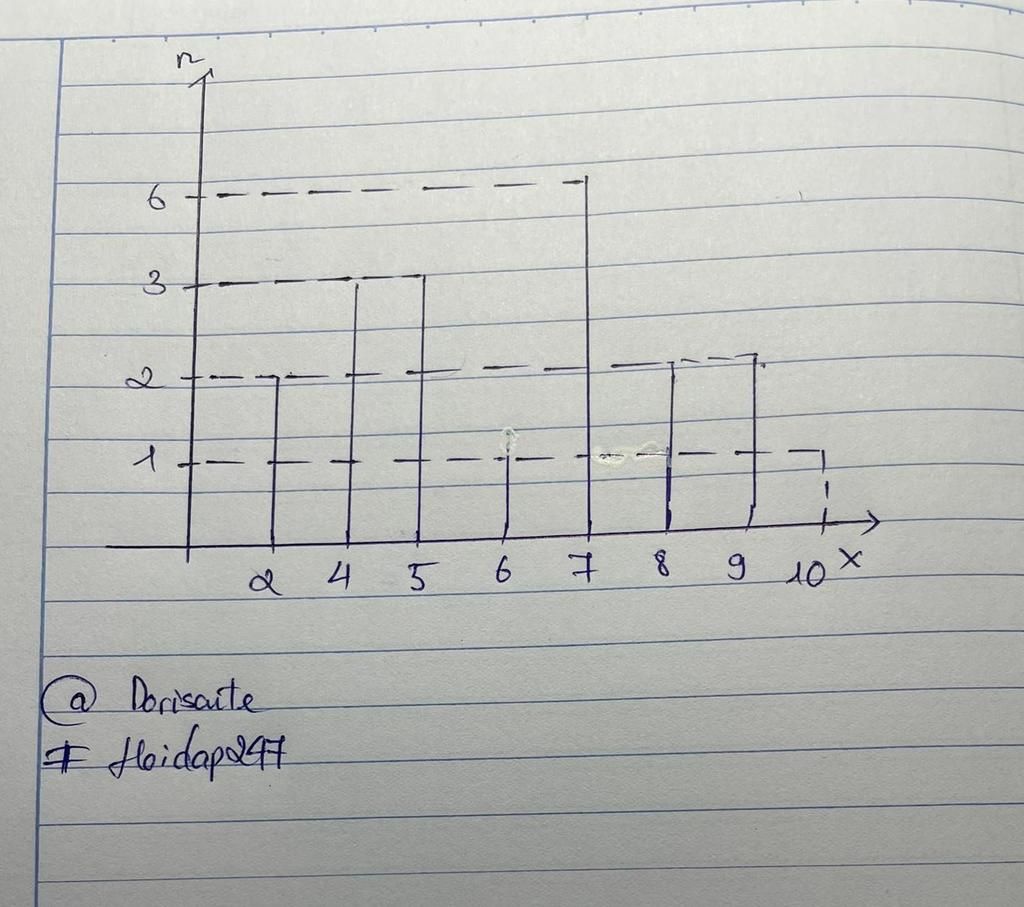 n
6
3
2
1
2 4 5 6 7 8 9 10 x
@ Dorisaite
# Hoidap247